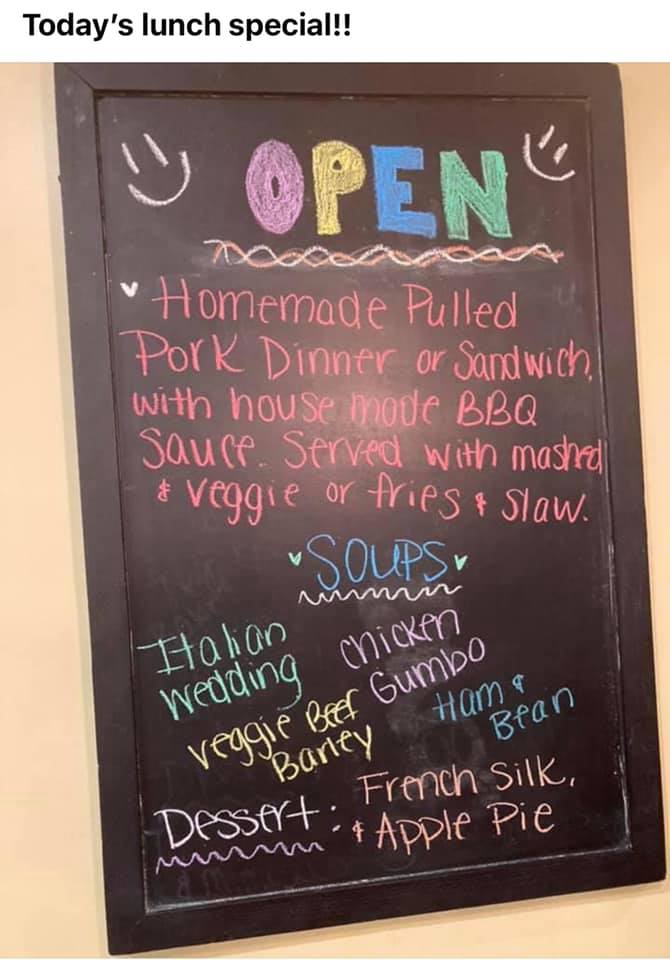 Today's lunch special!!
OPEN
Homemade Pulled
Pork Dinner or Sandwich,
with house made BBQ
Sauce. Served with mashed
& veggie or fries & slaw.
SOUPS
Italian
Wedding
Chicken
Gumbo
Veggie Beef
Barley
Ham &
Bean
Dessert: French Silk,
& Apple Pie